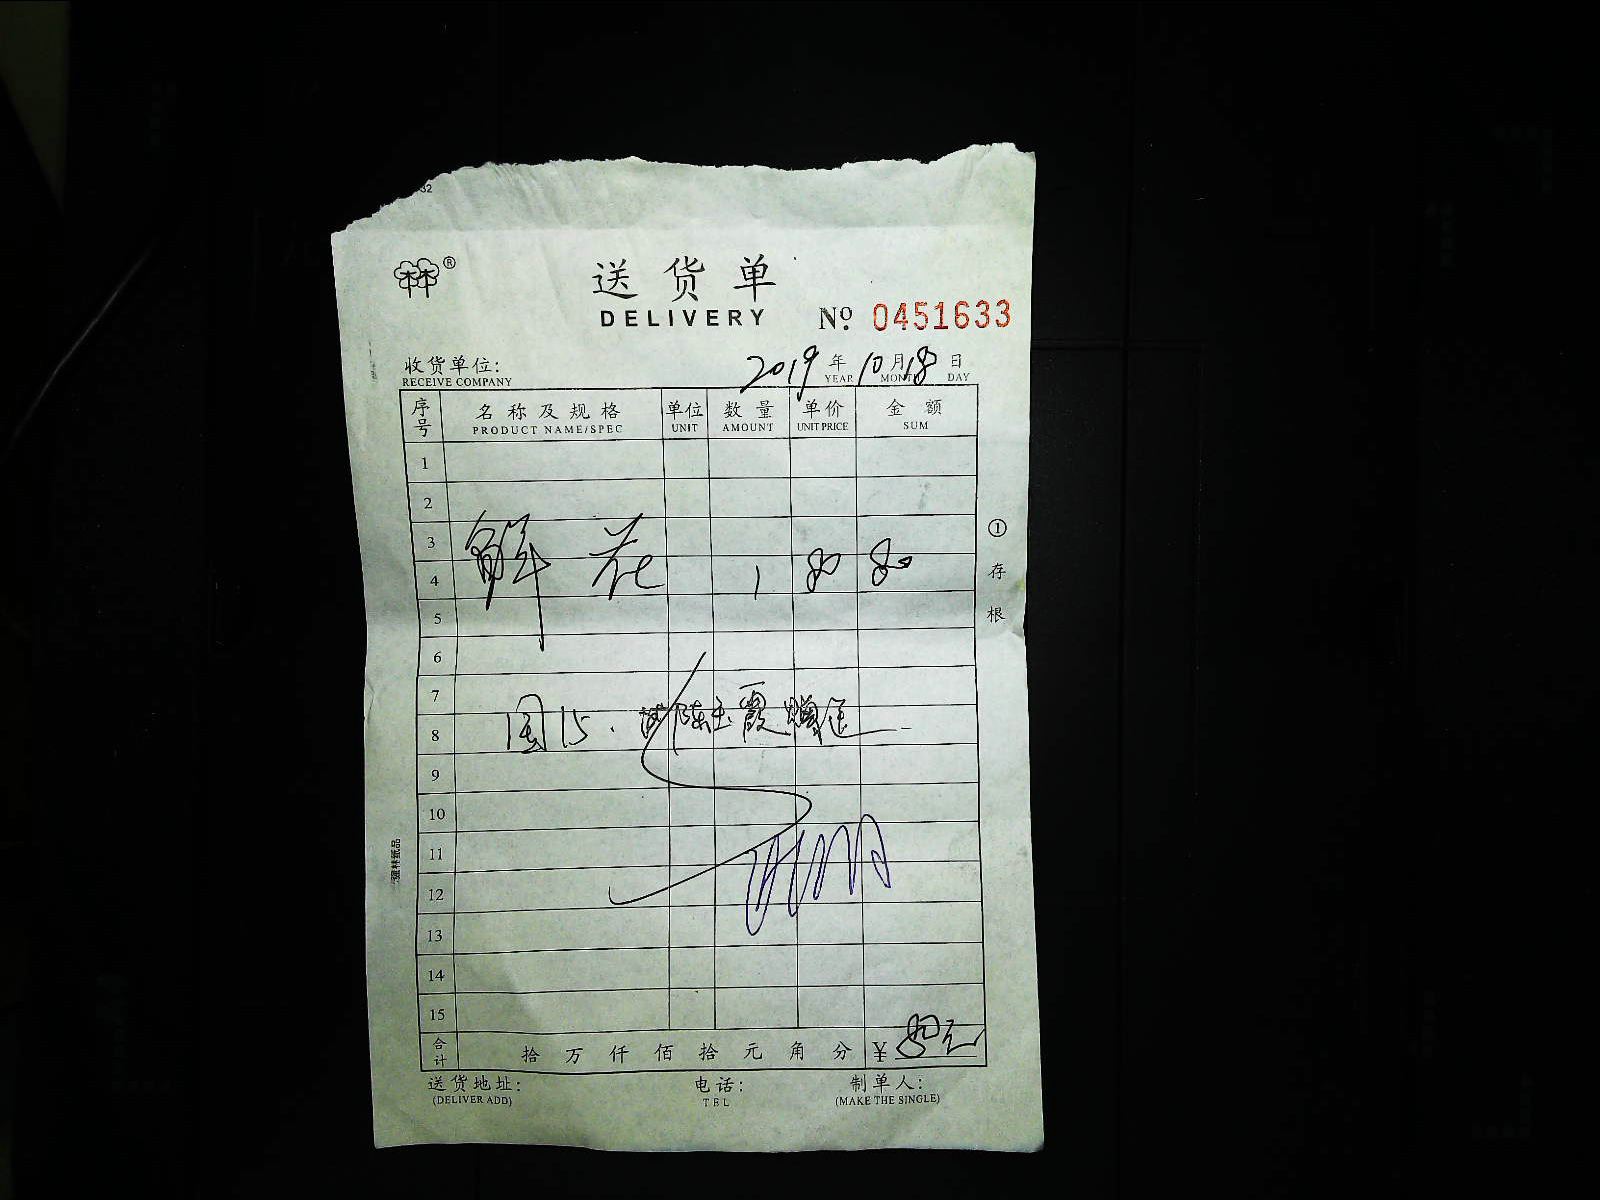 32
®
送货单
DELIVERY
Nº 0451633
收货单位:
RECEIVE COMPANY
2019 年 10 月 18 日
YEAR MONTH DAY
序号 名称及规格 单位 数量 单价 金额
PRODUCT NAME/SPEC UNIT AMOUNT UNIT PRICE SUM
1
2
3
4 鲜花 1 80 80
5
6
7
8 陈玉霞
9
10
11
12
13
14
15
合计 拾 万 仟 佰 拾 元 角 分 ¥ 80元
送货地址: 电话: 制单人:
(DELIVER ADD) TEL (MAKE THE SINGLE)
①存根